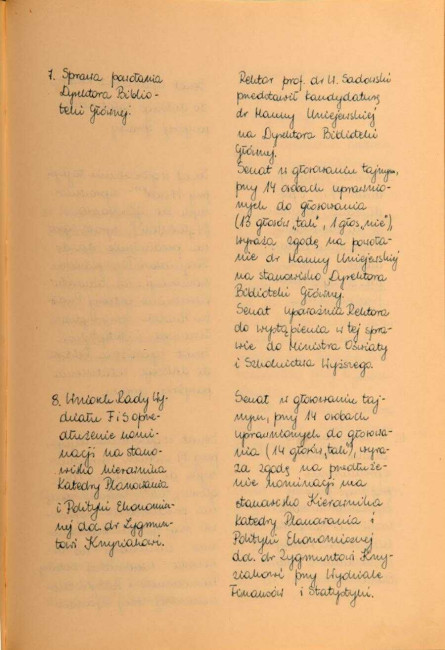 7. Sprawa powołania
Dyrektora Biblio-
teki Głównej.
Rektor prof. dr W. Sadowski
przedstawił kandydaturę
dr Hanny Uniejewskiej
na Dyrektora Biblioteki
Głównej.
Senat w głosowaniu tajnym,
przy 14 osobach uprawnio-
nych do głosowania
(13 głosów „tak", 1 głos „nie"),
wyraża zgodę na powoła-
nie dr Hanny Uniejewskiej
na stanowisko Dyrektora
Biblioteki Głównej.
Senat upoważnia Rektora
do wystąpienia w tej spra-
wie do Ministra Oświaty
i Szkolnictwa Wyższego
8. Wniosek Rady Wy-
działu FiS o prze-
dłużenie nomi-
nacji na stano-
wisko kierownika
Katedry Planowania
i Polityki Ekonomicz-
nej doc. dr Zygmun-
towi Knyziakowi.
Senat w głosowaniu taj-
nym, przy 14 osobach
uprawnionych do głosowa-
nia (14 głosów „tak"), wyra-
ża zgodę na przedłuże-
nie nominacji na
stanowisko Kierownika
Katedry Planowania i
Polityki Ekonomicznej
doc. dr Zygmuntowi Kny-
ziakowi przy Wydziale
Finansów i Statystyki.